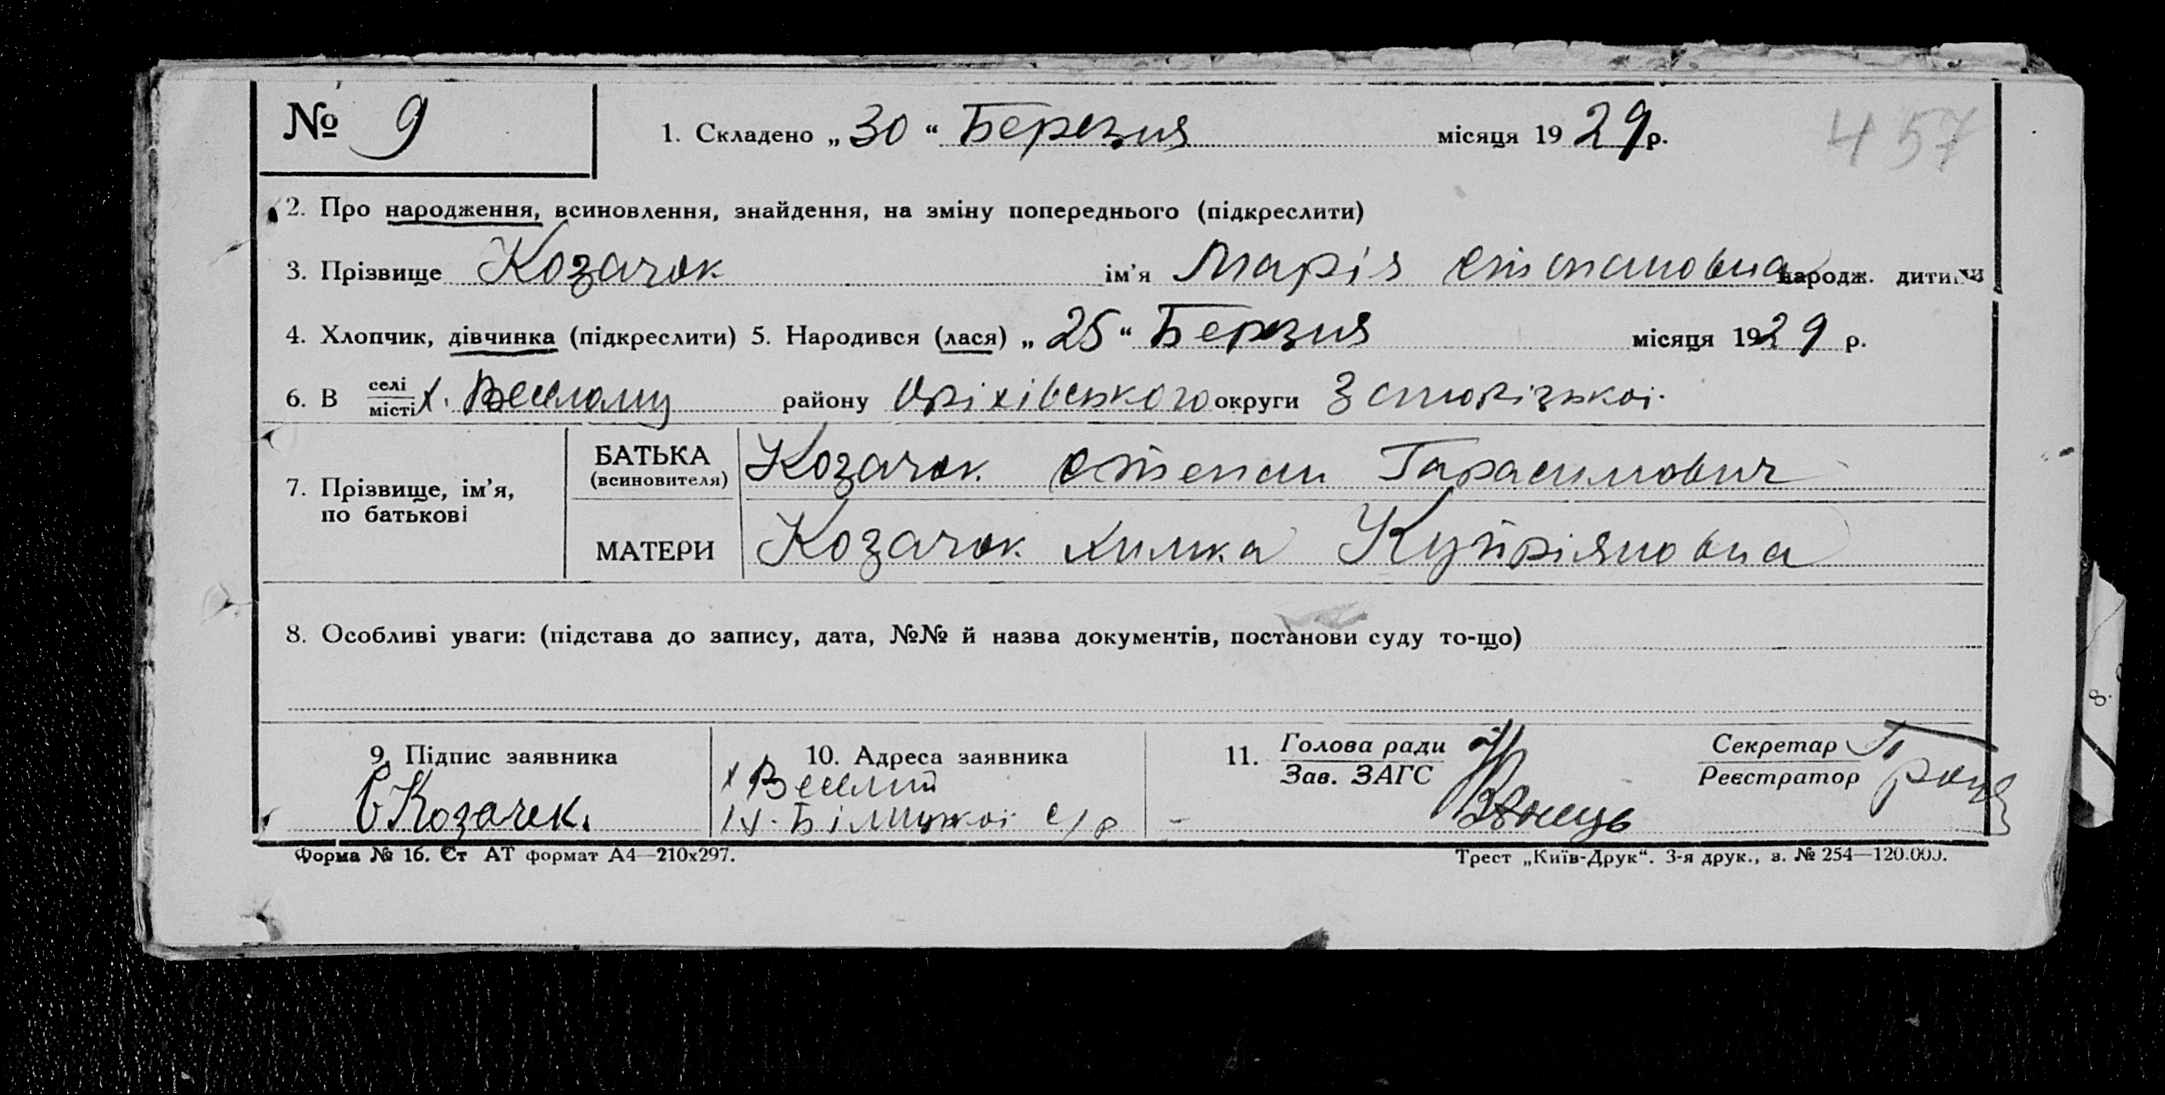 № 9
1. Складено „30“ Березня місяця 1929 р.
457
2. Про народження, всиновлення, знайдення, на зміну попереднього (підкреслити)
3. Прізвище Козачок ім’я Марія Степановна народж. дитини
4. Хлопчик, дівчинка (підкреслити) 5. Народився (лася) „25“ Березня місяця 1929 р.
6. В селі місті х. Веселому району Оріхівського округи Запорізької
7. Прізвище, ім’я, по батькові
БАТЬКА (всиновителя) Козачок Степан Гарасимович
МАТЕРИ Козачок Химка Купріяновна
8. Особливі уваги: (підстава до запису, дата, №№ й назва документів, постанови суду то-що)
9. Підпис заявника
С Козачек.
10. Адреса заявника
х Веселий
с/р
11. Голова ради
Зав. ЗАГС
Секретар
Реєстратор
Форма № 16. Ст АТ формат А4—210х297.
Трест „Київ-Друк“. 3-я друк., з. № 254—120.000.
8.